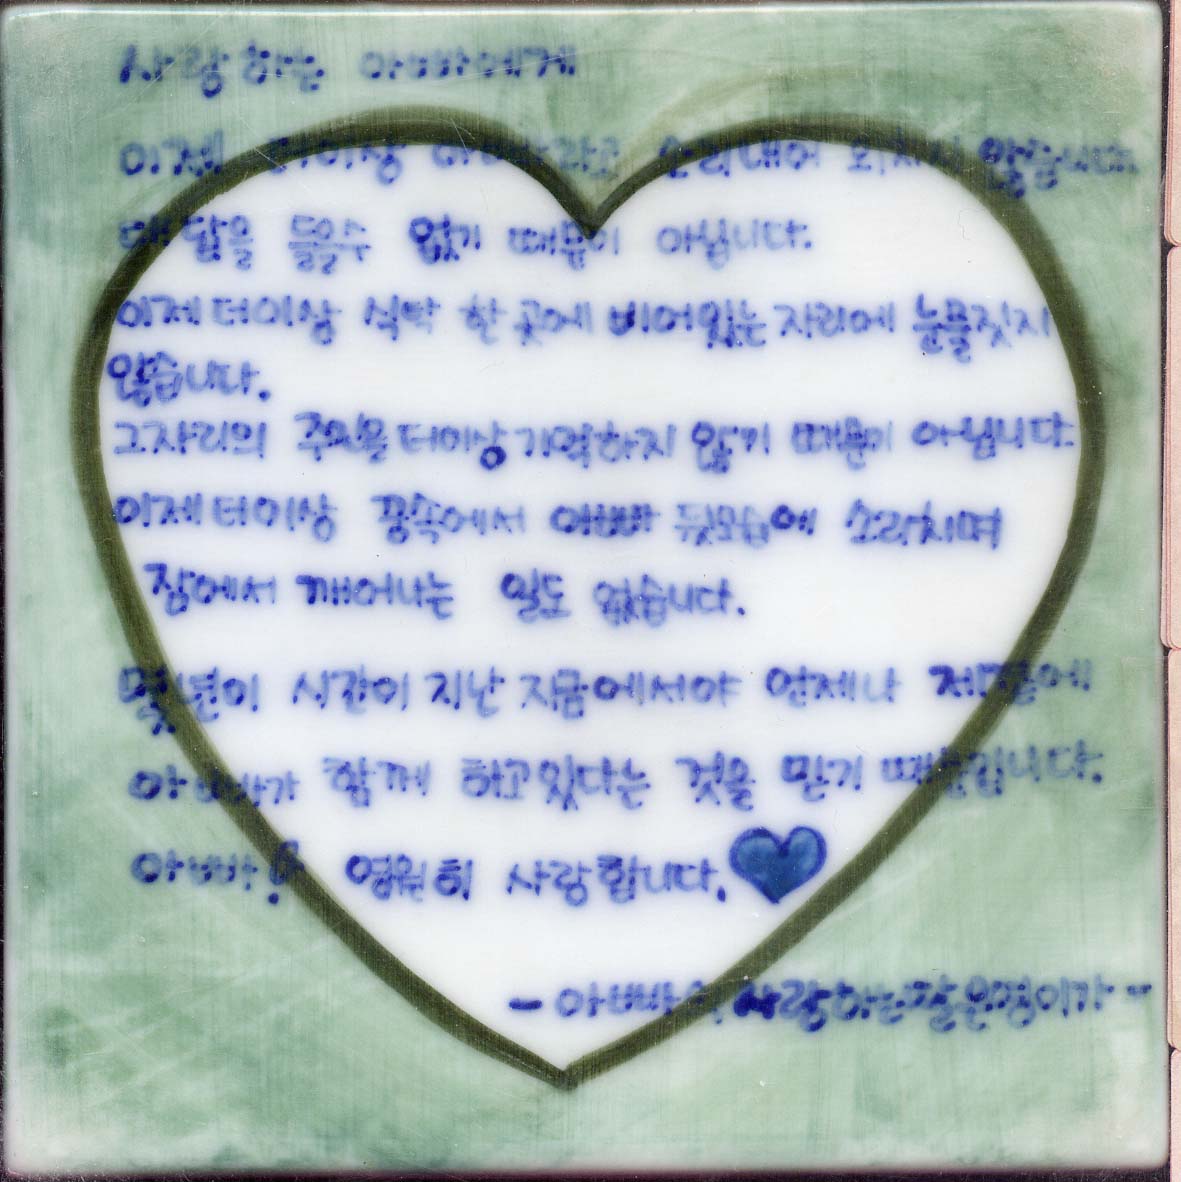 사랑하는 아빠에게
이제 더이상 아빠라고 소리내어 외치지 않습니다.
대답을 들을수 없기 때문이 아닙니다.
이제 더이상 식탁 한 곳에 비어있는 자리에 눈물짓지
않습니다.
그자리의 주인을 더이상 기억하지 않기 때문이 아닙니다.
이제 더이상 꿈속에서 아빠 뒷모습에 소리치며
잠에서 깨어나는 일도 없습니다.
몇년이 시간이 지난 지금에서야 언제나 제곁에
아빠가 함께 하고있다는 것을 믿기 때문입니다.
아빠! 영원히 사랑합니다.
- 아빠의 사랑하는 딸 은영이가 -